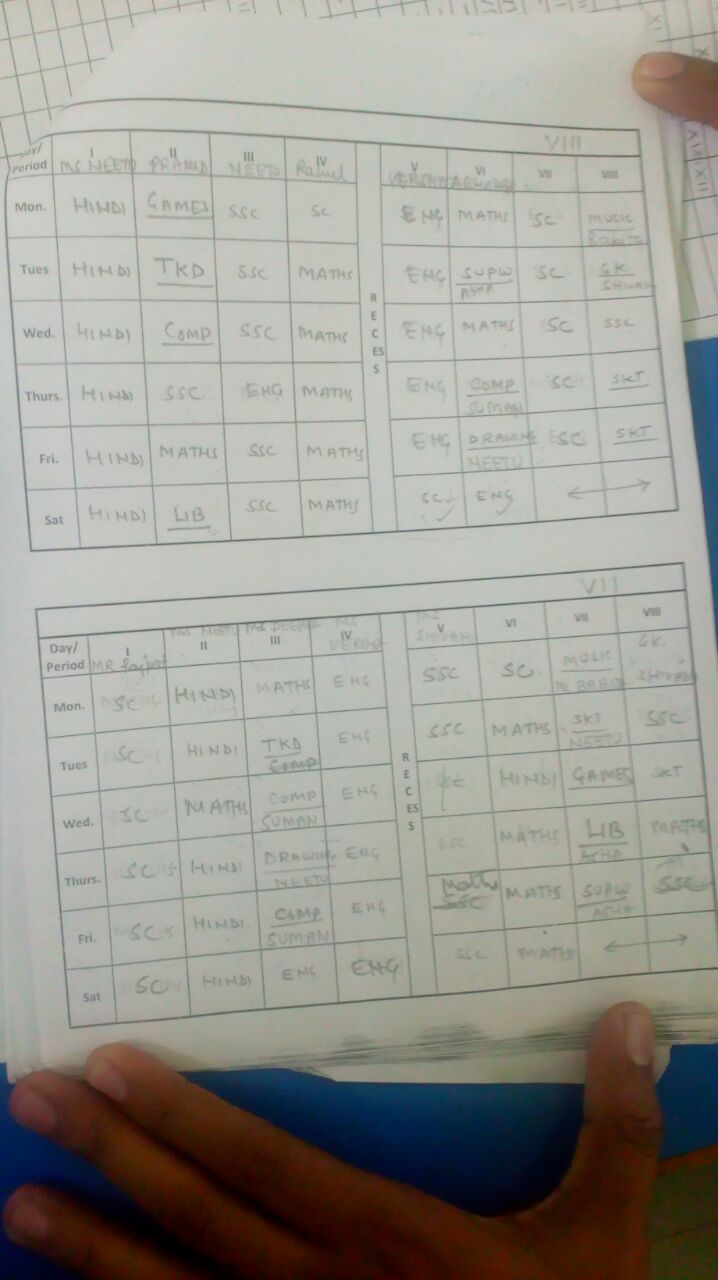 VIII
Day/ Period I II III IV V VI VII VIII
MS NEETU PRAMOD NEETU Rahul VERSHA
Mon. HINDI GAMES SSC SC ENG MATHS SC MUSIC
Tues HINDI TKD SSC MATHS ENG SUPW ASHA SC GK SHIVANI
Wed. HINDI COMP SSC MATHS ENG MATHS SC SSC
Thurs. HINDI SSC ENG MATHS ENG COMP SUMAN SC SKT
Fri. HINDI MATHS SSC MATHS ENG DRAWING NEETU SC SKT
Sat HINDI LIB SSC MATHS SC ENG
RECESS
VII
Day/ Period I II III IV V VI VII VIII
MR MS NEETU MS DEEPAK MS VERSHA MS SHIVANI
Mon. SC HINDI MATHS ENG SSC SC MUSIC GK SHIVANI
Tues SC HINDI TKD COMP ENG SSC MATHS SKT NEETU SSC
Wed. SC MATHS COMP SUMAN ENG SSC HINDI GAMES SKT
Thurs. SC HINDI DRAWING NEETU ENG SSC MATHS LIB ASHA MATHS
Fri. SC HINDI COMP SUMAN ENG Maths SSC MATHS SUPW ASHA SSC
Sat SC HINDI ENG ENG SSC MATHS
RECESS